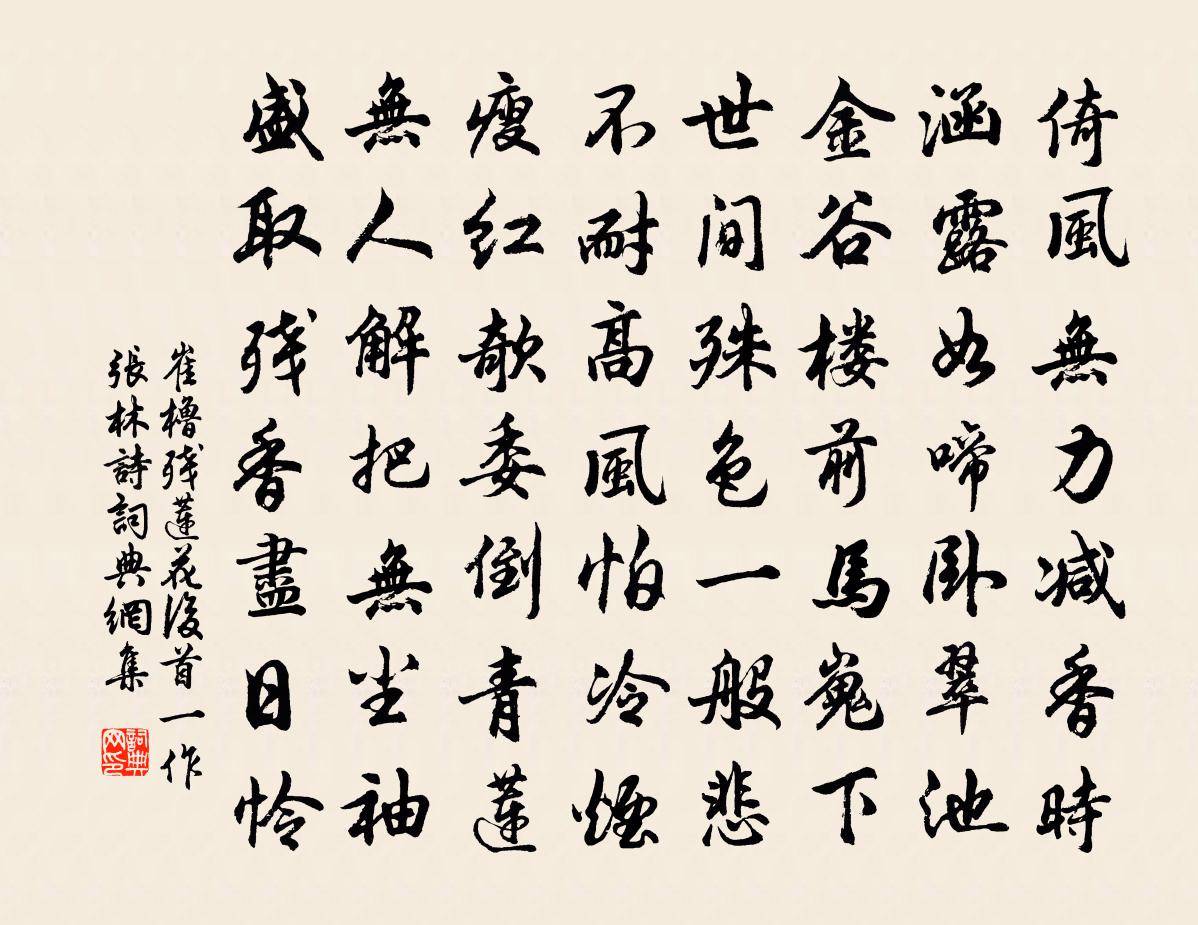 倚風無力減香時
涵露如啼臥翠池
金谷楼前馬嵬下
世间殊色一般悲
不耐高風怕冷煙
瘦红欹委倒青蓮
無人解把無尘袖
盛取残香盡日怜
崔櫓残蓮花後首一作
張林詩詞典網集
詞典
网印